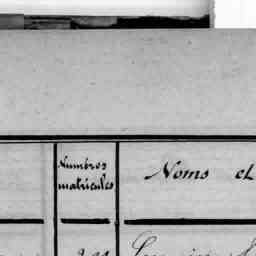 Numéros
matricules
Noms et